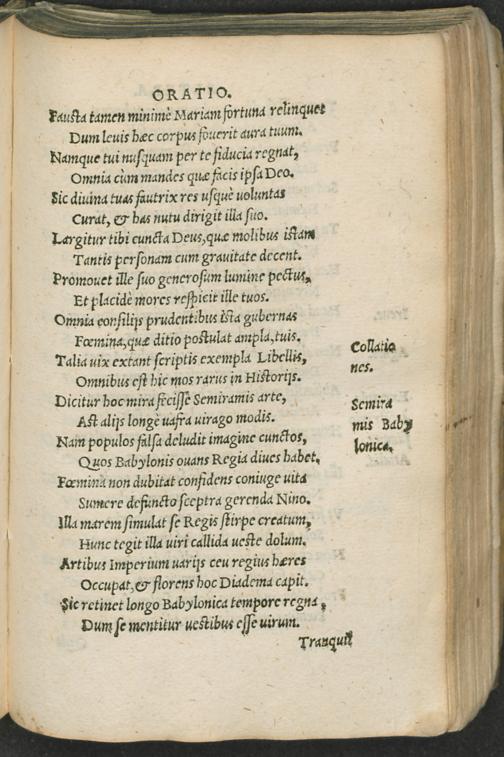 ORATIO.
Fausta tamen minimè Mariam fortuna relinquet
Dum leuis hæc corpus fouerit aura tuum.
Namque tui nusquam per te fiducia regnat,
Omnia cùm mandes quæ facis ipsa Deo.
Sic diuina tuas fautrix res usquè uoluntas
Curat, & has nutu dirigit illa suo.
Largitur tibi cuncta Deus, quæ molibus istam
Tantis personam cum grauitate decent.
Promouet ille suo generosum lumine pectus,
Et placidè mores respicit ille tuos.
Omnia consilijs prudentibus ista gubernas
Fœmina, quæ ditio postulat ampla, tuis.
Talia uix extant scriptis exempla Libellis,
Collatio
Omnibus est hic mos rarus in Historijs.
nes.
Dicitur hoc mira fecisse Semiramis arte,
Semira
Ast alijs longè uafra uirago modis.
mis Baby
Nam populos falsa deludit imagine cunctos,
lonica.
Quos Babylonis ouans Regia diues habet.
Fœmina non dubitat confidens coniuge uita
Sumere defuncto sceptra gerenda Nino.
Illa marem simulat se Regis stirpe creatum,
Hunc tegit illa uiri callida ueste dolum.
Artibus Imperium uarijs ceu regius hæres
Occupat, & florens hoc Diadema capit.
Sic retinet longo Babylonica tempore regna,
Dum se mentitur uestibus esse uirum.
Tranquil